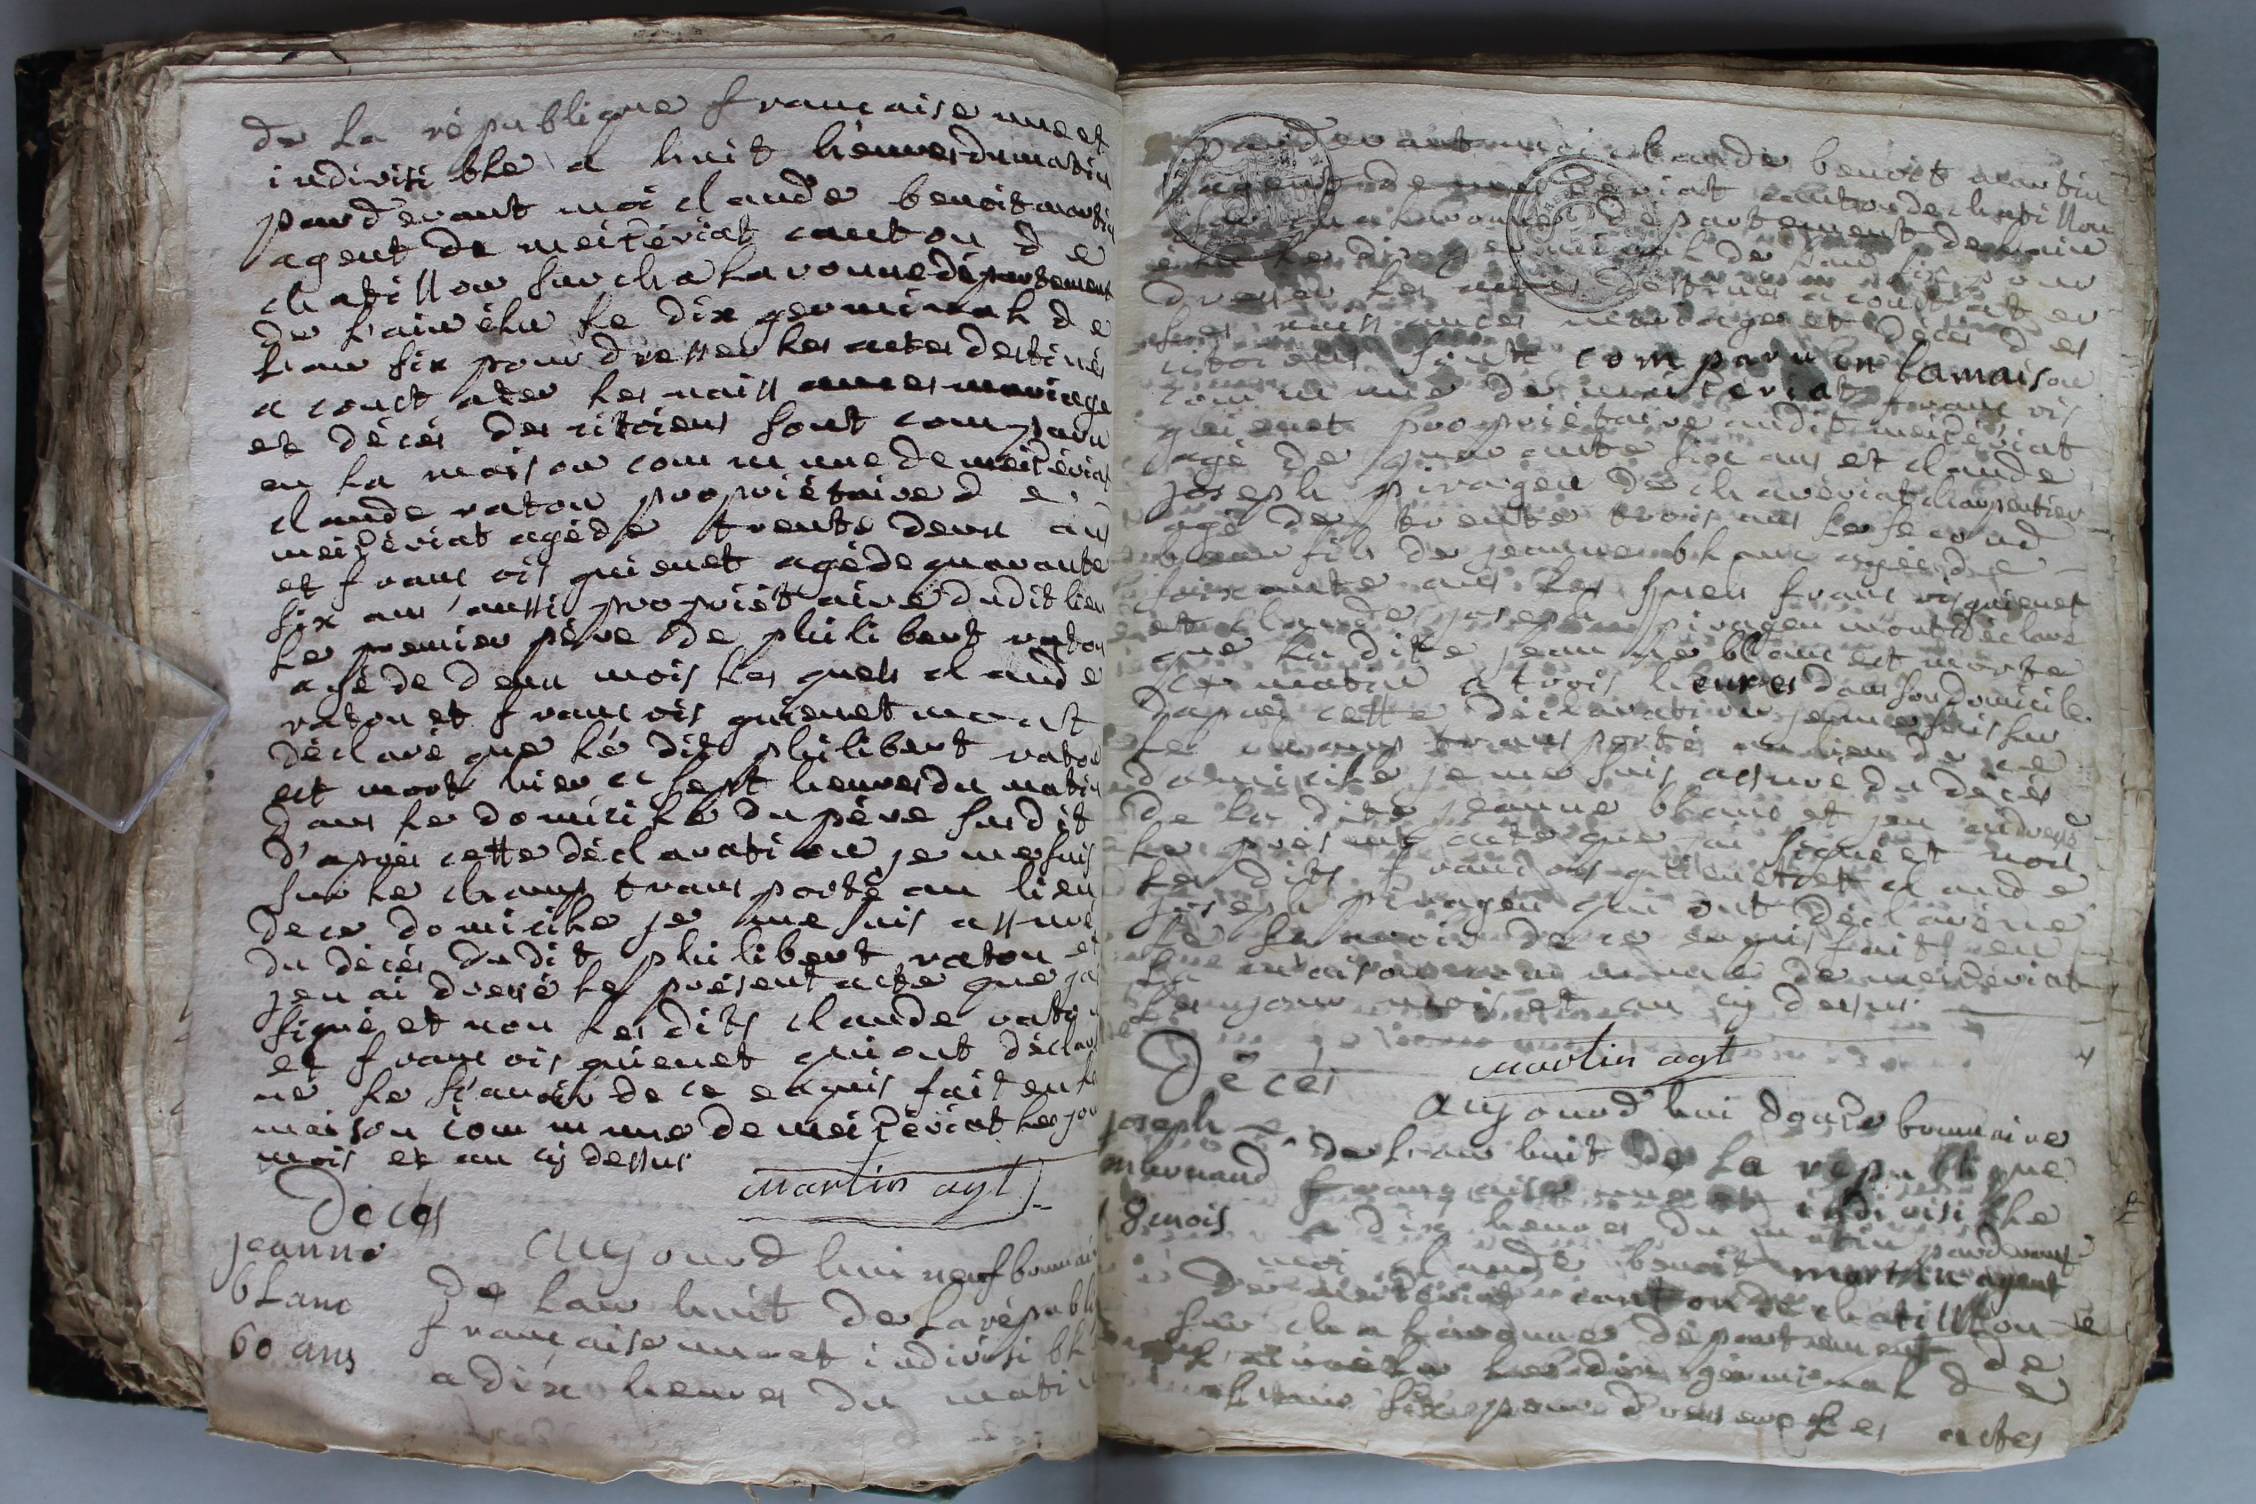 de la république francaise une et
indivisi ble a huit heures du matin
pard'evant moi claude benoit martin
agent de meizériat canton de
chatillon sur chalaronne département
de l'ain élu le dix germinal de
l'an six pour dresser les actes destinés
a constater les naissances mariage
et décés des citoiens sont comparu
en la maison commune de meizériat
claude raton propriétaire de
meizériat agé de trente deux ans
et francois guienet agé de quarante
six ans aussi propriétaire dudit lieu
le premier pére de philibert raton
agé de deux mois les quels claude
raton et francois guienet m'ont
déclaré que le dit philibert raton
est mort hier a sept heures du matin
dans le domicile du pére susdit
d'aprés cette déclaration je me suis
sur le champ transporté au lieu
de ce domicile je me suis assuré
du décés dudit philibert raton et
j'en ai dressé le présent acte que jai
signé et non les dits claude raton
et francois guienet qui ont déclaré
ne le scavoir de ce enquis fait en la
maison commune de meizériat les jour
mois et an cy dessus
martin agt
Décés
jeanne
blanc
60 ans
aujourd'hui neuf brumaire
de lan huit de la républi
francaise une et indivisible
a dix heures du matin
pard'evant moi claude benoit martin
agent de meizériat canton de chatillon
sur chalaronne département de lain
élu le dix germinal de l'an six pour
dresser les actes destinés a constater
les naissances mariages et décés des
citoiens sont comparu en la maison
commune de meizériat francois
guienet propriétaire audit meizériat
agé de quarante six ans et claude
joseph piragen de chaveriat charpentier
agé de trente trois ans le second
beau fils de jeanne blanc agée de
soixante ans les quels francois guienet
et claude joseph piragen m'ont déclaré
que la dite jeanne blanc est morte
ce matin a trois heures dans son domicile
d'aprés cette déclaration je me suis sur
le champ transporté au lieu de ce
domicile je me suis assuré du décés
de la dite jeanne blanc et j'en ai dressé
le présent acte que j'ai signé et non
les dits francois guienet et claude
joseph piragen qui ont déclaré ne
le scavoir de ce enquis fait en
la maison commune de meizériat
les jour mois et an cy dessus
martin agt
Décés
joseph
8 mois
aujourd'hui douze brumaire
de l'an huit de la république
francaise une et indivisible
a dix heures du matin pard'evant
moi claude benoit martin agent
de meizériat canton de chatillon
sur chalaronne département de
l'ain élu le dix germinal de
l'an six pour dresser les actes